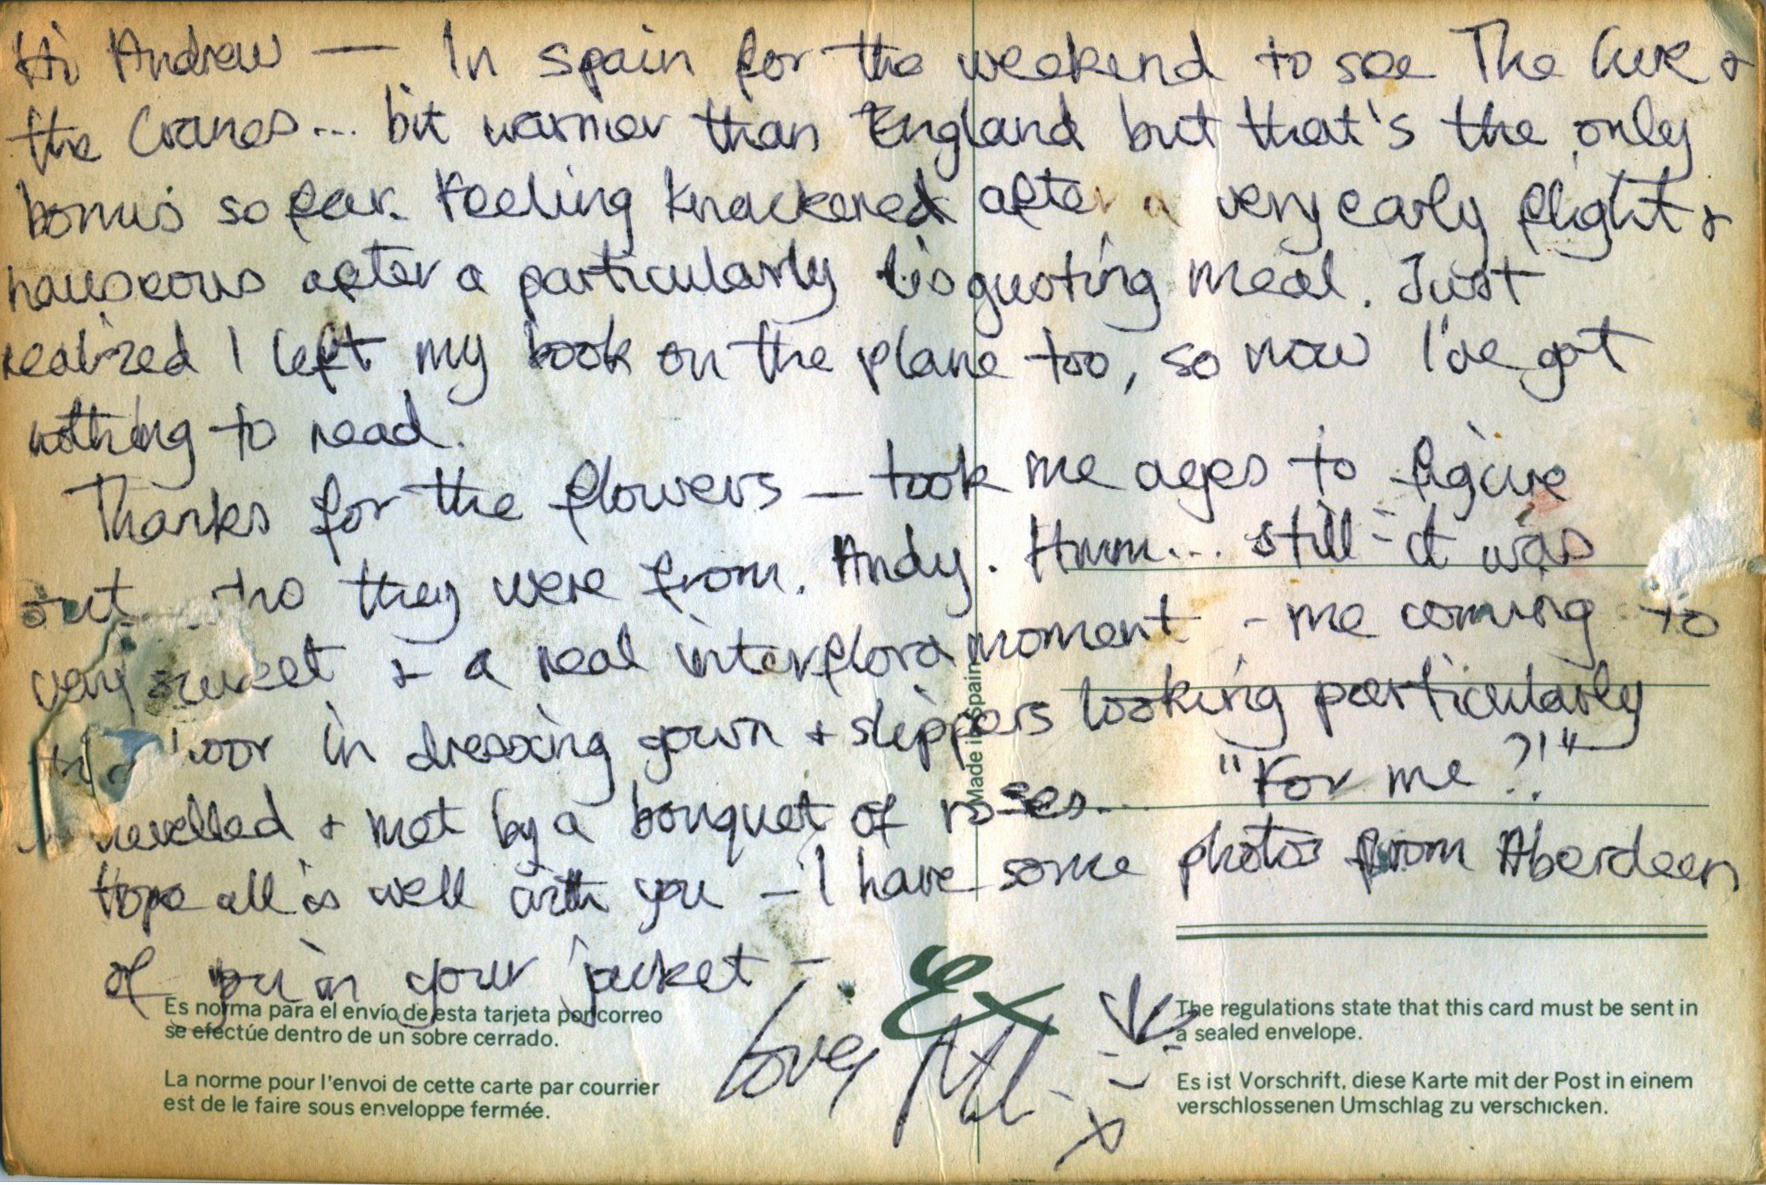 Hi Andrew — In Spain for the weekend to see The Cure &
the Cranes... bit warmer than England but that's the only
bonus so far. Feeling knackered after a very early flight &
nauseous after a particularly disgusting meal. Just
realized I left my book on the plane too, so now I've got
nothing to read.
Thanks for the flowers — took me ages to figure
out who they were from. Andy. Hmm... still - it was
very sweet & a real interflora moment - me coming to
the door in dressing gown & slippers looking particularly
"For me?!"
& met by a bouquet of roses...
Hope all is well with you — I have some photos from Aberdeen
of you in your jacket -
Love,
x
Made in Spain
Ex
Es norma para el envío de esta tarjeta por correo
se efectúe dentro de un sobre cerrado.
La norme pour l'envoi de cette carte par courrier
est de le faire sous enveloppe fermée.
The regulations state that this card must be sent in
a sealed envelope.
Es ist Vorschrift, diese Karte mit der Post in einem
verschlossenen Umschlag zu verschicken.